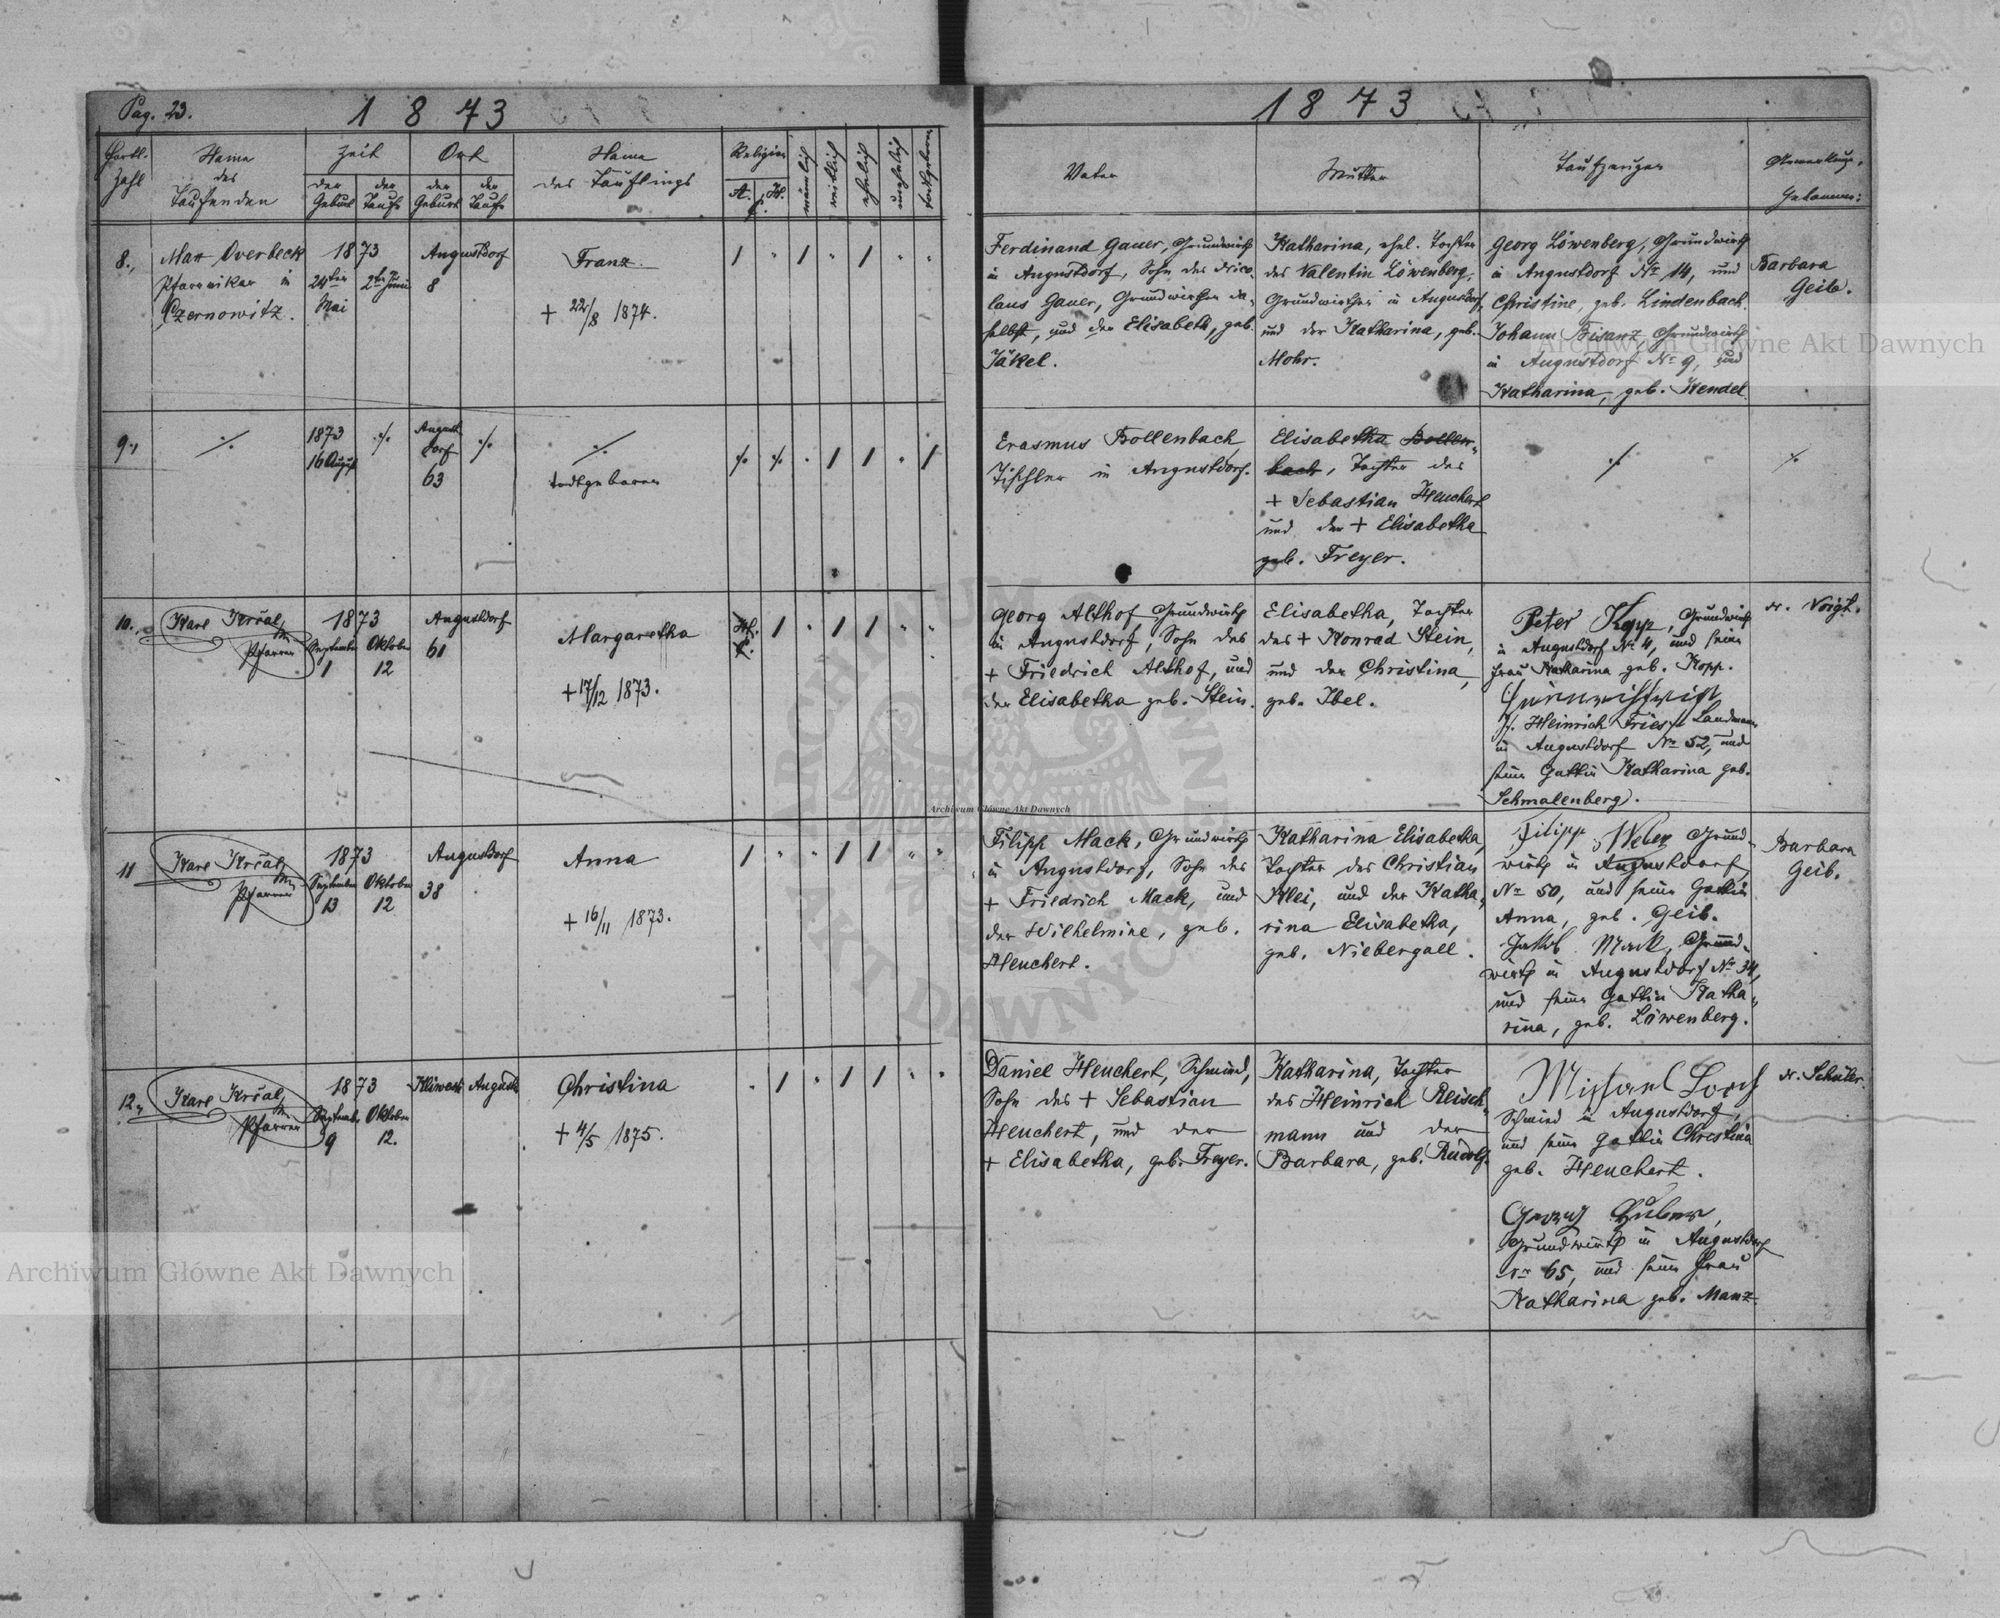 Pag. 23.
1873
1873
Fortl. Zahl
Name des Taufenden
Zeit
der Geburt
der Taufe
Ort
der Geburt
der Taufe
Name des Täuflings
Religion
A. C.
H.
männlich
weiblich
ehelich
unehelich
todtgeboren
Vater
Mutter
Taufzeugen
Anmerkung.
Hebamme:
8.,
Max Overbeck
Pfarrvikar in
Czernowitz.
1873
24ten
Mai
2ten Juni
Augustdorf
8
Franz.
+ 22/8 1874.
Ferdinand Gauer, Grundwirth
in Augustdorf, Sohn des Nico-
laus Gauer, Grundwirthes da-
selbst, und der Elisabeth, geb.
Jäkel.
Katharina, ehel. Tochter
des Valentin Löwenberg,
Grundwirthes in Augustdorf,
und der Katharina, geb.
Mohr.
Georg Löwenberg, Grundwirth
in Augustdorf Nr 14, und
Christine, geb. Lindenbach.
Johann Bisanz, Grundwirth
in Augustdorf Nr 9, und
Katharina, geb. Hendel.
Barbara
Geib.
9.,
1873
16 August
August
dorf
63
todtgeboren
Erasmus Bollenbach,
Tischler in Augustdorf.
Elisabetha Bollen-
bach, Tochter des
+ Sebastian Heuchert
und der + Elisabetha
geb. Freyer.
10.,
Karl Krčal,
Pfarrer
1873
September
1
Oktober
12
Augustdorf
61
Margaretha
+ 17/12 1873.
Georg Althof, Grundwirth
in Augustdorf, Sohn des
+ Friedrich Althof, und
der Elisabetha geb. Stein.
Elisabetha, Tochter
des + Konrad Stein,
und der Christina,
geb. Ibel.
Peter Kopp, Grundwirth
in Augustdorf Nr 4, und seine
Frau Katharina geb. Kopp.
Heinrich Friess Landmann
in Augustdorf Nr 52, und
seine Gattin Katharina geb.
Schmalenberg.
Voigt.
11
Karl Krčal,
Pfarrer
1873
September
13
Oktober
12
Augustdorf
38
Anna
+ 16/11 1873.
Filipp Mack, Grundwirth
in Augustdorf, Sohn des
+ Friedrich Mack, und
der Wilhelmine, geb.
Heuchert.
Katharina Elisabetha,
Tochter des Christian
Klei, und der Katha-
rina Elisabetha,
geb. Niebergall.
Filipp Weber Grund-
wirth in Augustdorf,
Nr 50, und seine Gattin
Anna, geb. Geib.
Jakob Mack, Grund-
wirth in Augustdorf Nr 34,
und seine Gattin Katha-
rina, geb. Löwenberg.
Barbara
Geib.
12.,
Karl Krčal,
Pfarrer
1873
September
9
Oktober
12.
Augustd
Christina
+ 4/5 1875.
Daniel Heuchert, Schmied,
Sohn des + Sebastian
Heuchert, und der
+ Elisabetha, geb. Freyer.
Katharina, Tochter
des Heinrich Reisch-
mann und der
Barbara, geb. Rudolf.
Michael Lorch
Schmied in Augustdorf,
und seine Gattin Christina
geb. Heuchert.
Georg Huber,
Grundwirth in Augustdorf
Nr 65, und seine Frau
Katharina geb. Manz.
Schüler.
Archiwum Główne Akt Dawnych
Archiwum Główne Akt Dawnych
Archiwum Główne Akt Dawnych
ARCHIWUM GŁÓWNE
AKT DAWNYCH